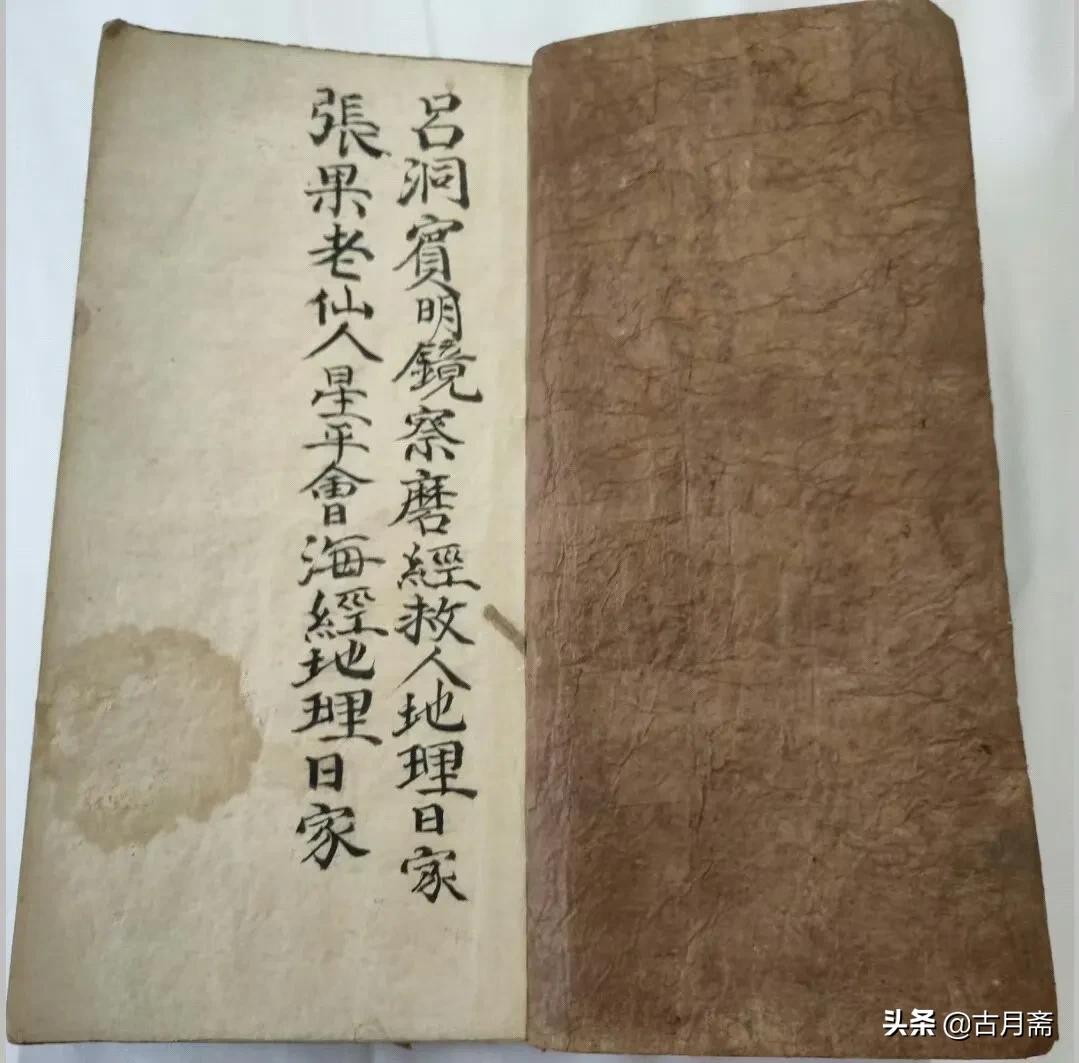 呂洞賓明鏡察磨經救人地理日家
張果老仙人星平會海經地理日家
头条 @古月斋